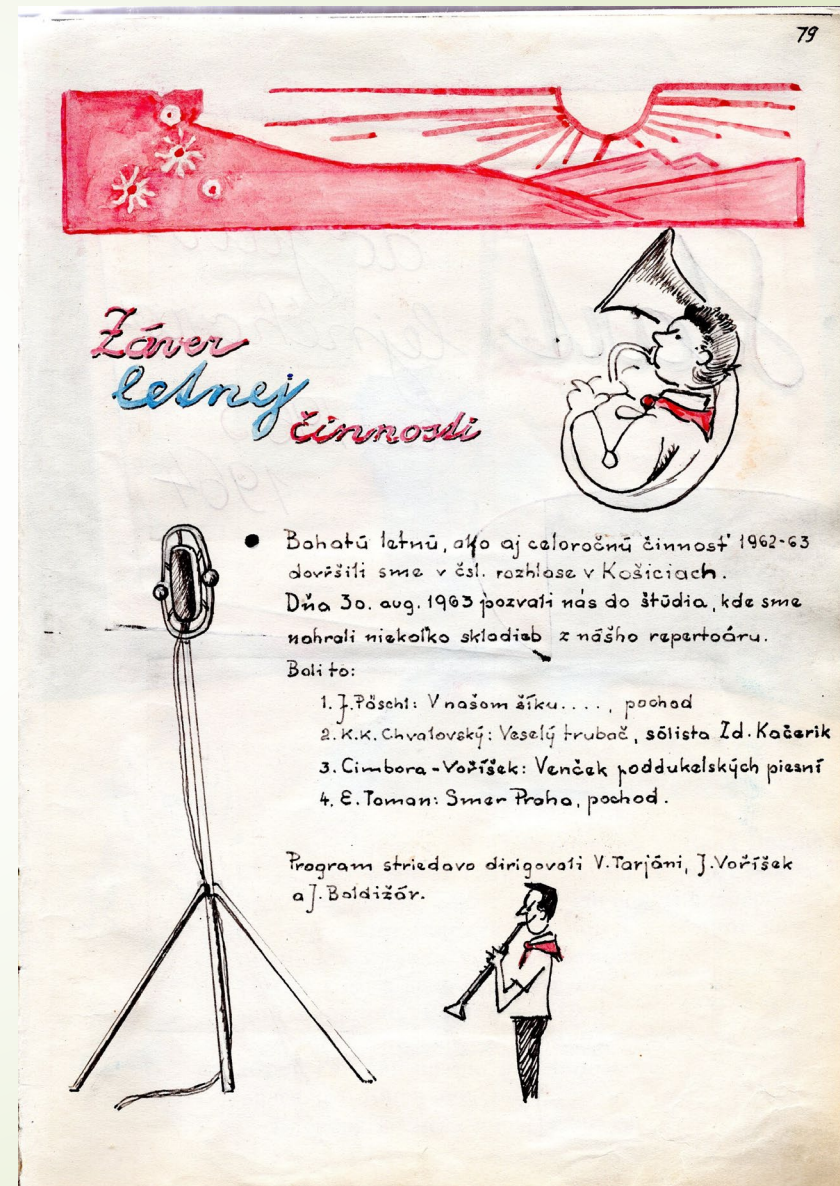 79
Záver
letnej
činnosti
Bohatú letnú, ako aj celoročnú činnosť 1962-63
dovŕšili sme v čsl. rozhlase v Košiciach.
Dňa 30. aug. 1963 pozvali nás do štúdia, kde sme
nahrali niekoľko skladieb z nášho repertoáru.
Boli to:
1. J. Pöschl: V našom šíku...., pochod
2. K.K. Chvalovský: Veselý trubač, sólista Zd. Kačerik
3. Cimbora-Voříšek: Venček poddukelských piesní
4. E. Toman: Smer Praha, pochod.
Program striedavo dirigovali V. Tarjáni, J. Voříšek
a J. Boldižár.